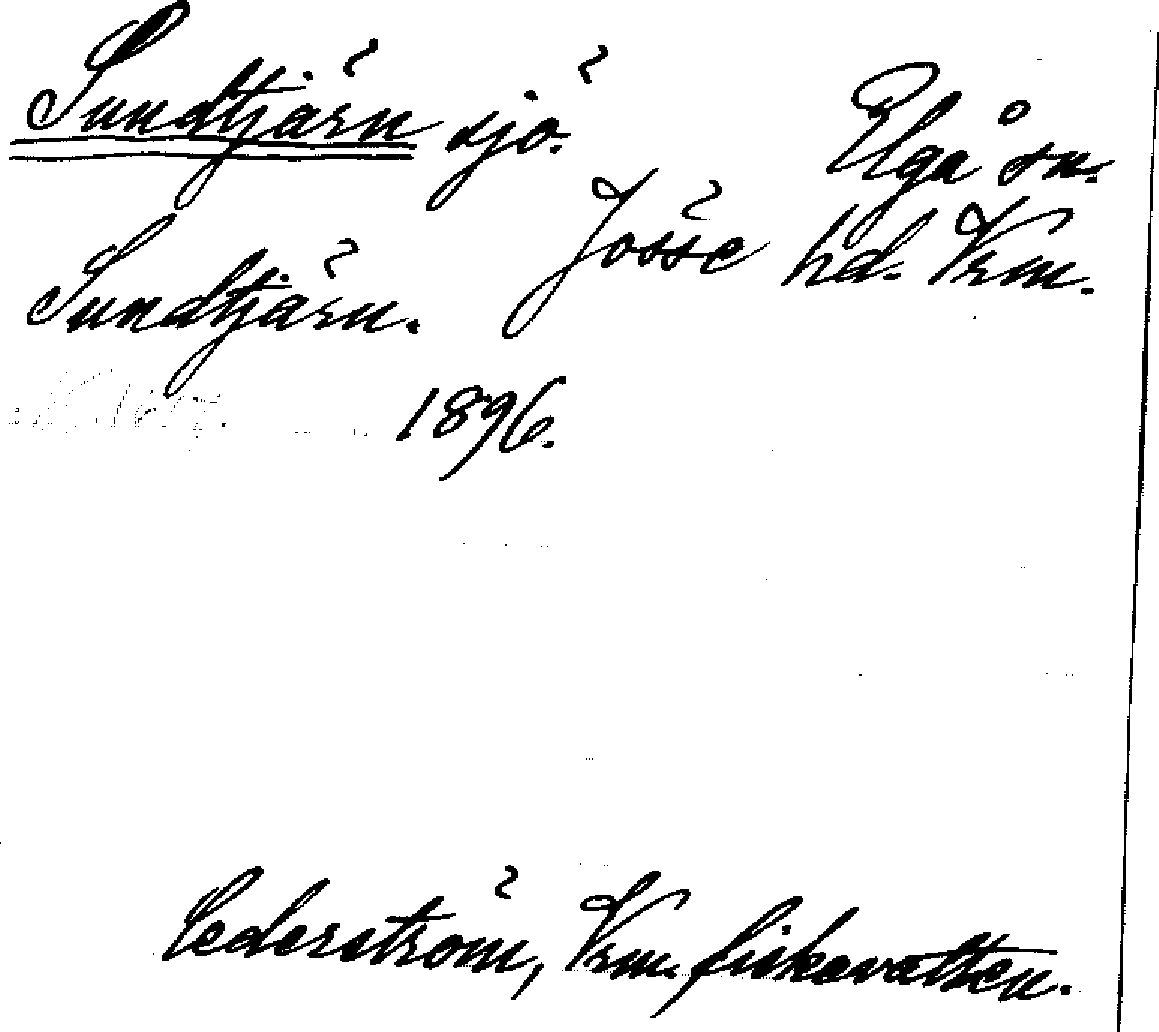 Sundtjärn sjö. Elgå sn.
Jösse hd. Vrm.
Sundtjärn.
1896.
Cederström, Vrm. fiskevatten.